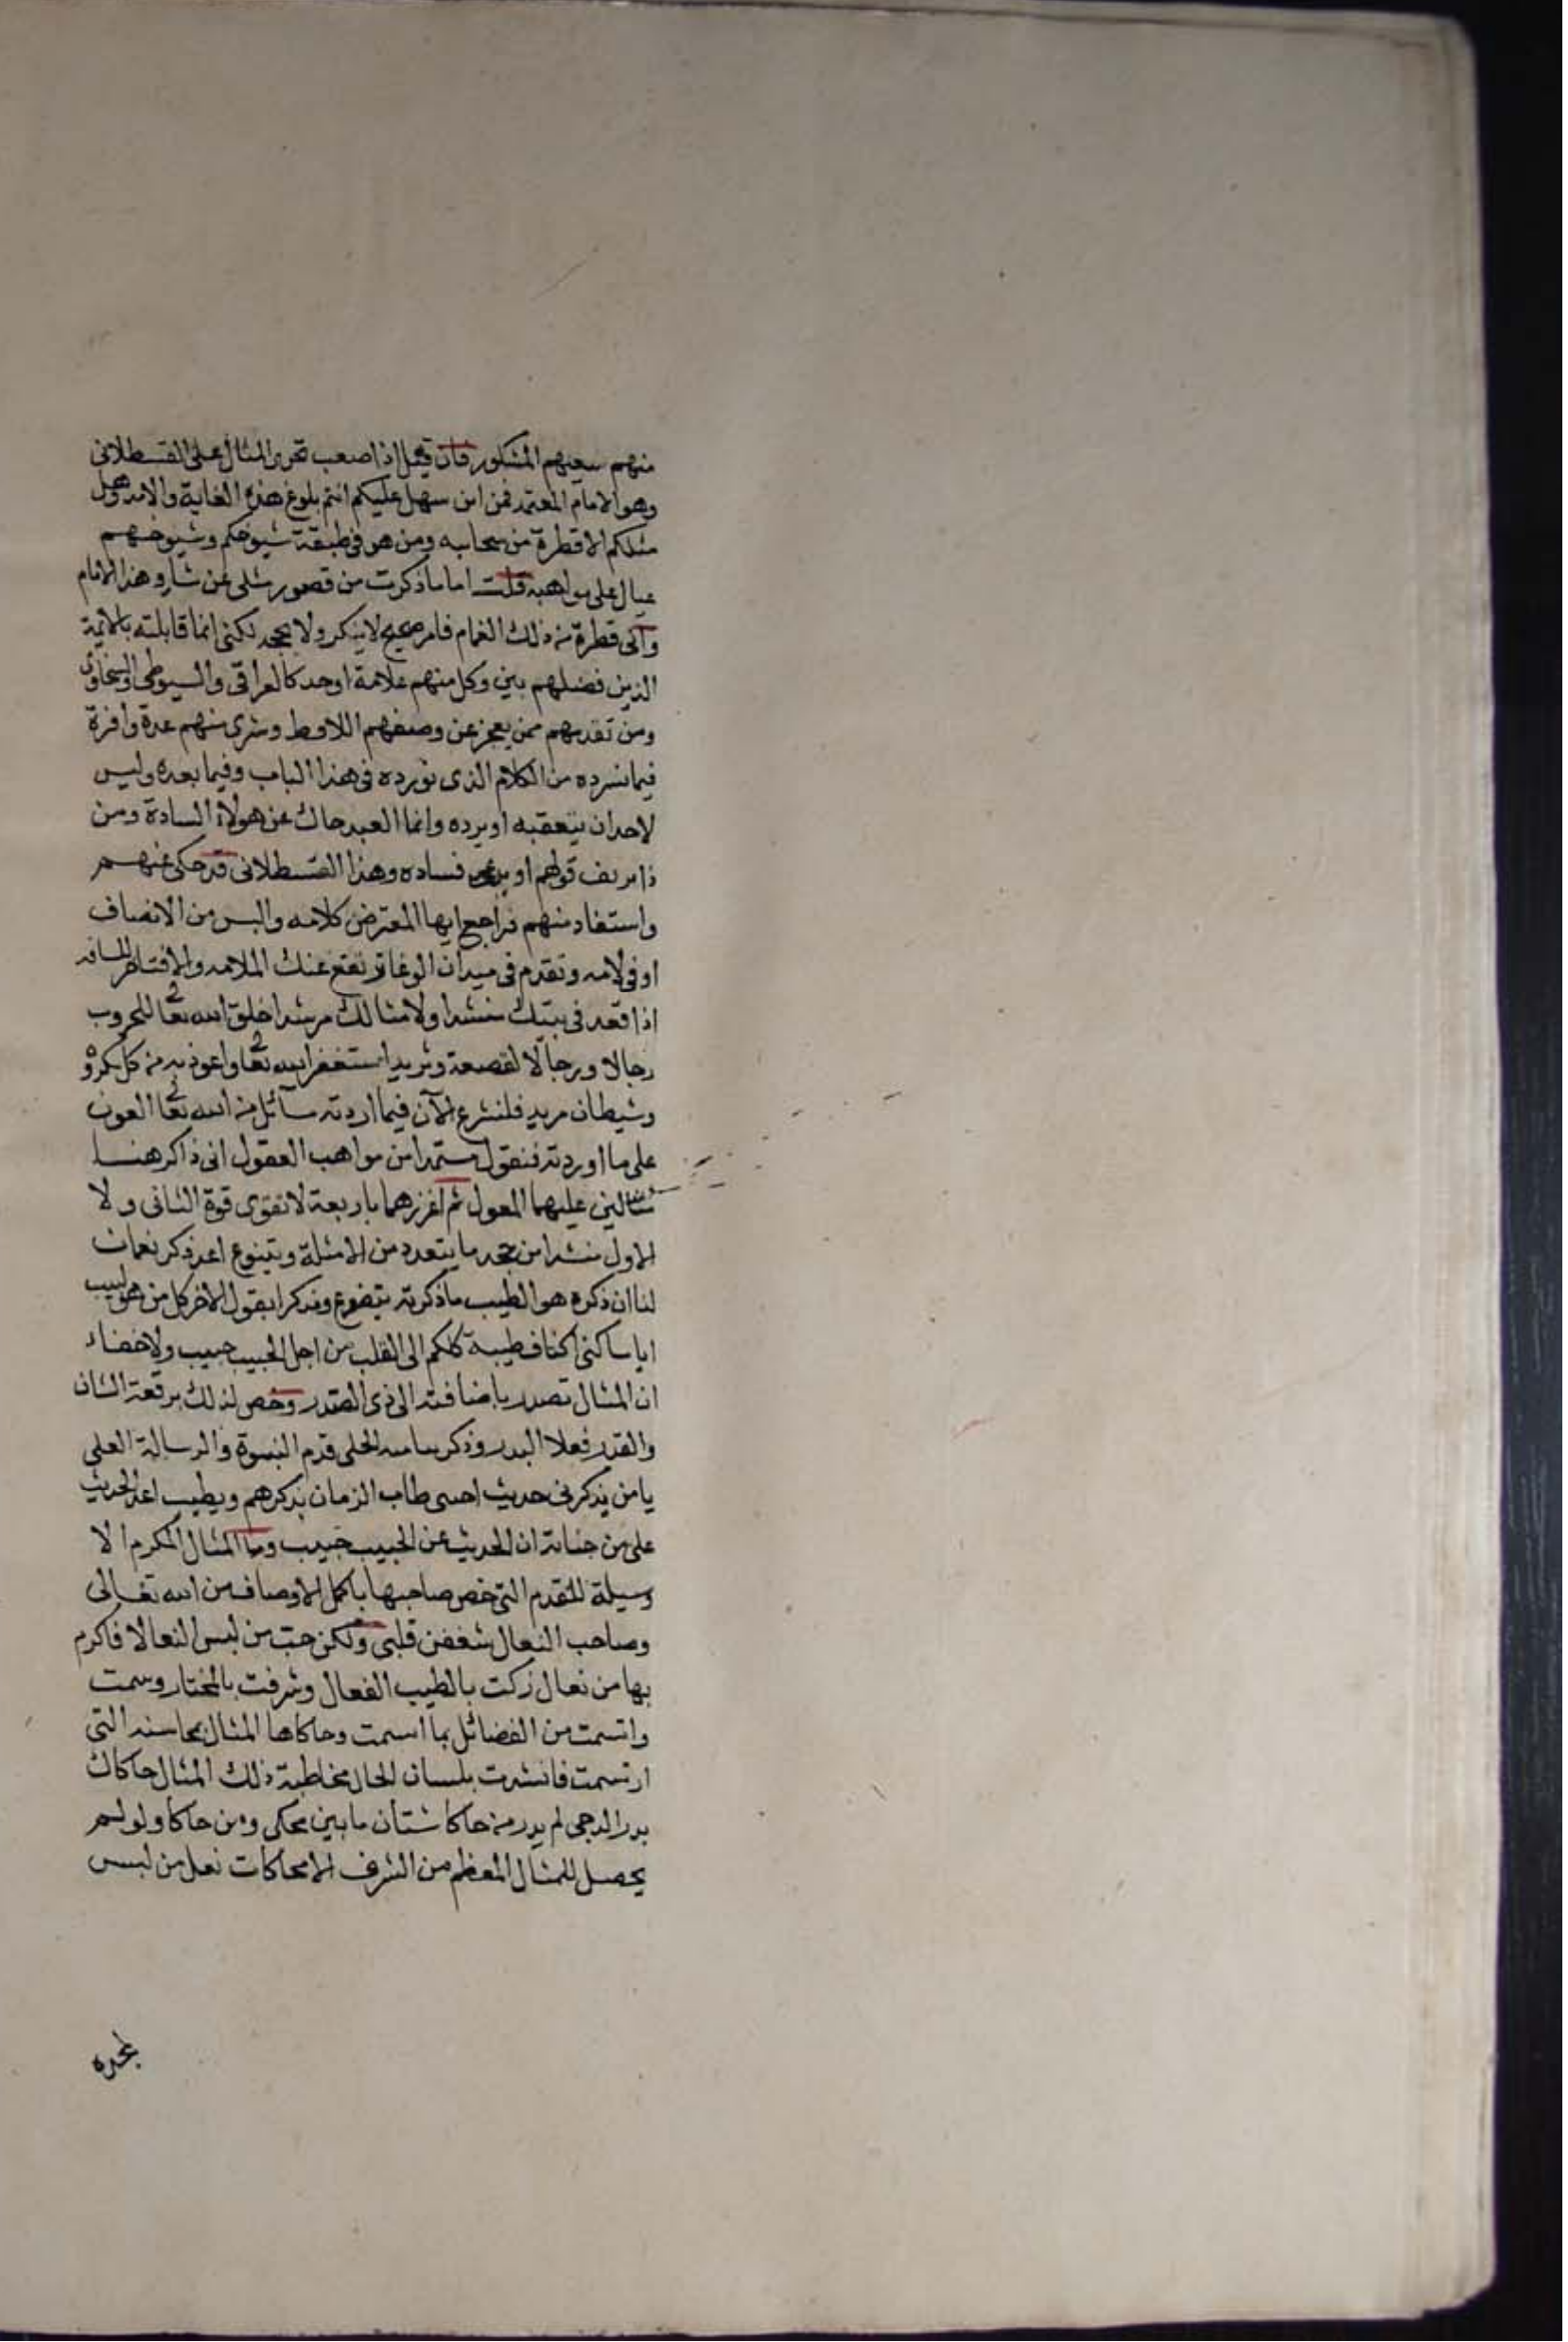 منهم سعيهم المشكور فان قيل اذا صعب تحرير المثال على القسطلانى
وهو الامام المعتمد فمن اين سهل عليكم انتم بلوغ هذه الغاية والامد وهل
مثلكم الا قطرة من سحابه ومن هو فى طبقة شيوخكم وشيوخهم
عيال على مواهبه قلت اما ما ذكرت من قصور مثلى عن شاو هذا الامام
وانى قطرة من ذلك الغمام فامر صحيح لا ينكر ولا يجحد لكنى انما قابلته بالايمة
الذين فضلهم بين وكل منهم علامة اوحد كالعراقى والسيوطى والسخاوى
ومن تقدمهم ممن يعجز عن وصفهم اللافظ وسترى منهم عدة وافرة
فيما نسرده من الكلام الذى نورده فى هذا الباب وفيما بعده وليس
لاحد ان يتعقبه او يرده وانما العبد حاك عن هولاء السادة ومن
ذا يزيف قولهم او يدعى فساده وهذا القسطلانى قد حكى عنهم
واستفاد منهم فراجع ايها المعترض كلامه والبس من الانصاف
اوفى لامه وتقدم فى ميدان الوغا ترتفع عنك الملامه والا
اذا قعد فى بيتك منشدا ولامثالك مرشدا خلق الله تعا للحروب
رجالا ورجالا لقصعة وثريد استغفر الله تعا واعوذ به من كل مكروه
وشيطان مريد فلنشرع الآن فيما اردته سآئلا من الله تعا العون
على ما اوردته فنقول مستمدا من مواهب العقول انى ذاكر هنا
مثالين عليهما المعول ثم اعززهما باربعة لا تقوى قوة الثانى ولا
الاول منشدا من جحد ما يتعدد من الامثلة ويتنوع اعد ذكر نعمان
لنا ان ذكره هو الطيب ما ذكرته يتضوع ومذكرا بقول الاخر كل من هو لبيب
ايا ساكنى اكناف طيبة كلكم الى القلب من اجل الحبيب حبيب ولا خفاء
ان المثال تصدر باضافته الى ذى الصدر وخص لذلك برفعة الشان
والقدر فعلا البدر وذكر سامه الحلى قدم النبوة والرسالة العلى
يا من يذكرنى حديث احبتى طاب الزمان بذكرهم ويطيب اعد الحديث
على من جنباته ان الحديث عن الحبيب حبيب وما المثال المكرم الا
وسيلة للقدم التى خص صاحبها باكمل الاوصاف من الله تعالى
وصاحب النعال شغفن قلبى ولكن حب من لبس النعالا فاكرم
بها من نعال زكت بالطيب الفعال وشرفت بالمختار وسمت
واتسمت من الفضائل بما اتسمت وحاكاها المثال بمحاسنه التى
ارتسمت فانشدت بلسان الحال مخاطبة ذلك المثال حاكاك
بدر الدجى لم يدر من حاكا شتان ما بين محكى ومن حاكا ولو لم
يحصل للمثال المعظم من الشرف الا محاكات نعل من لبس